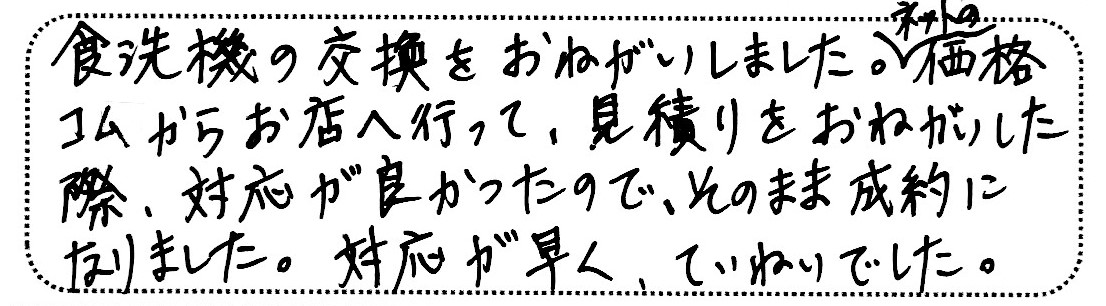 食洗機の交換をおねがいしました。ネットの価格
コムからお店へ行って、見積りをおねがいした
際、対応が良かったので、そのまま成約に
なりました。対応が早く、ていねいでした。